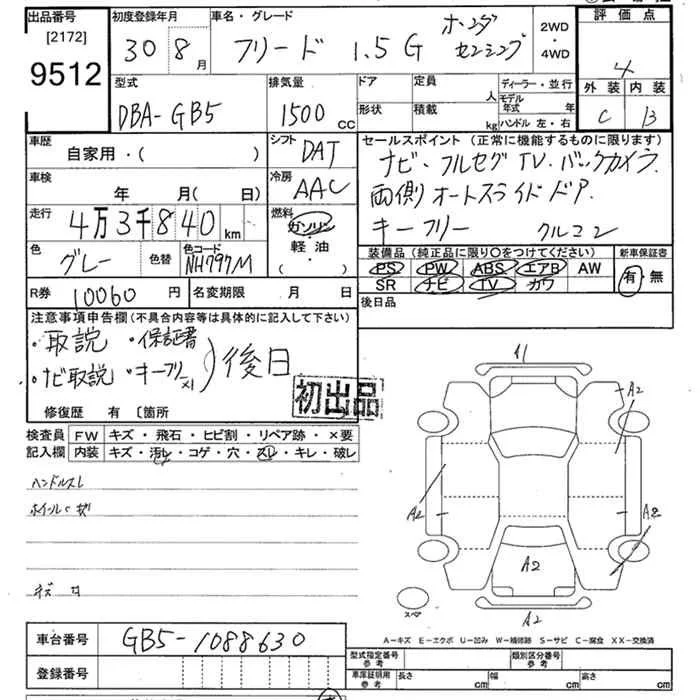 出品番号
[2172]
9512
初度登録年月
30 8 月
車名・グレード
フリード 1.5 G ホンダ センシング
2WD
・
4WD
評価点
4
外装 内装
C B
型式
DBA-GB5
排気量
1500 cc
ドア
形状
定員 人
積載 kg
ディーラー・並行
モデル年式 年
ハンドル 左・右
車歴
自家用・( )
シフト
DAT
セールスポイント (正常に機能するものに限ります)
ナビ・フルセグTV.バックカメラ.
両側オートスライドドア.
キーフリー クルコン
車検
年 月( 日)
冷房
AAC
走行
4万3千840 km
燃料
ガソリン
・
軽・油
・
( )
色
グレー
色替
色コード
NH797M
装備品(純正品に限り○をつけてください)
新車保証書
PS PW ABS エアB AW
SR ナビ TV カワ
有・無
R券
10060 円
名変期限 月 日
後日品
注意事項申告欄(不具合内容等は具体的に記入して下さい)
・取説 ・保証書
・ナビ取説 ・キーフリー×1 ) 後日
初出品
修復歴 有 〔箇所
検査員
記入欄
FW キズ・飛石・ヒビ割・リペア跡・×要
内装 キズ・汚レ・コゲ・穴・スレ・キレ・破レ
ハンドルスレ
ホイールCキズ
A2
A2
A2
A2
A2
スペア
A2
A-キズ E-エクボ U-凹み W-補修跡 S-サビ C-腐食 XX-交換済
車台番号
GB5-1088630
登録番号
型式指定番号
参考
類別区分番号
参考
車庫証明用
参考
長さ cm
幅 cm
高さ cm